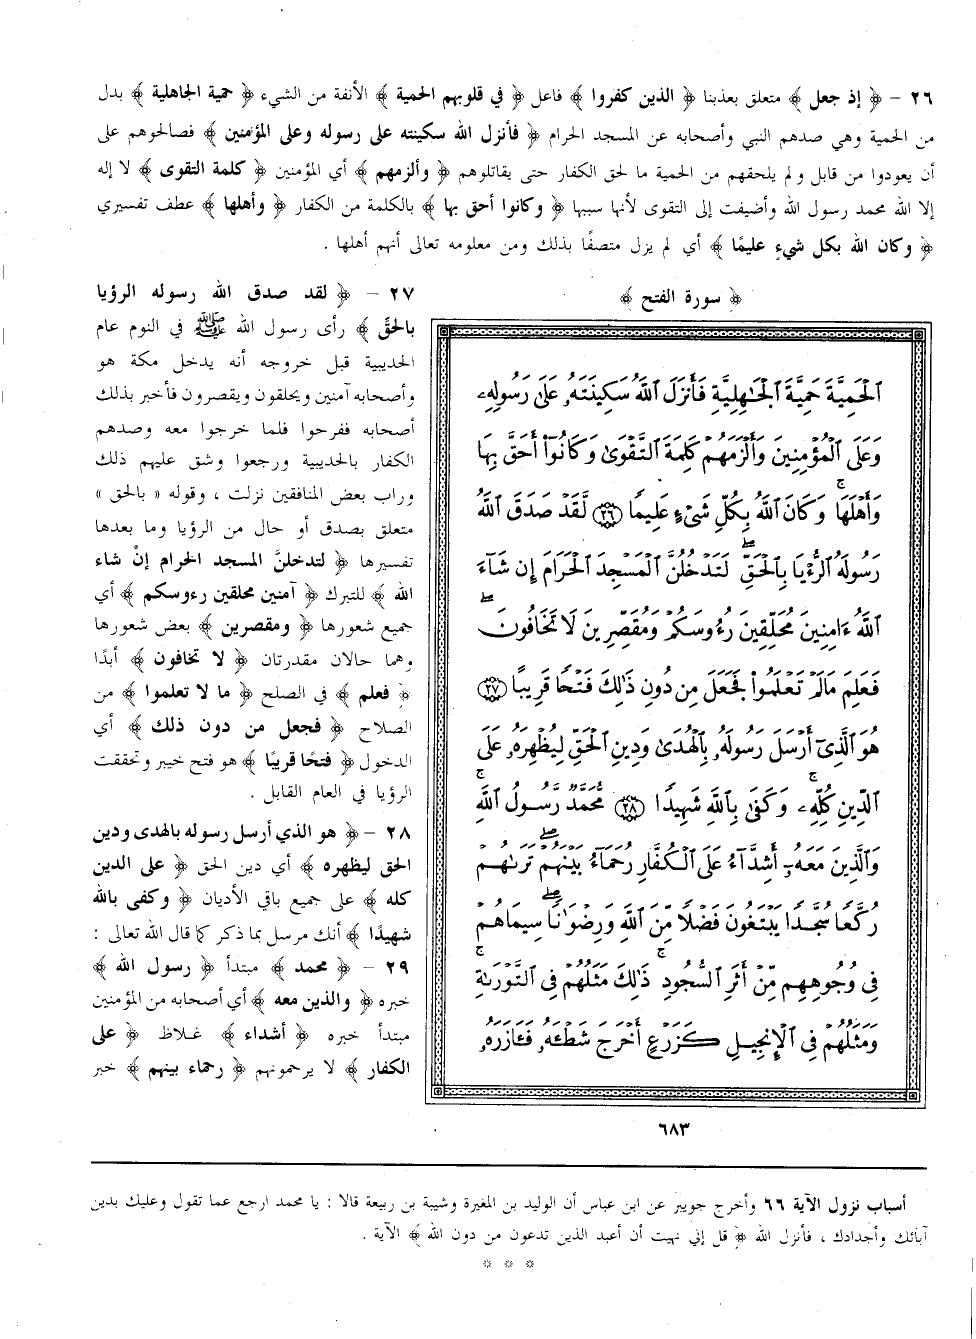 ٢٦ – ﴿ إذ جعل ﴾ متعلق بعذبنا ﴿ الذين كفروا ﴾ فاعل ﴿ في قلوبهم الحمية ﴾ الأنفة من الشيء ﴿ حمية الجاهلية ﴾ بدل
من الحمية وهي صدهم النبي وأصحابه عن المسجد الحرام ﴿ فأنزل الله سكينته على رسوله وعلى المؤمنين ﴾ فصالحوهم على
أن يعودوا من قابل ولم يلحقهم من الحمية ما لحق الكفار حتى يقاتلوهم ﴿ وألزمهم ﴾ أي المؤمنين ﴿ كلمة التقوى ﴾ لا إله
إلا الله محمد رسول الله وأضيفت إلى التقوى لأنها سببها ﴿ وكانوا أحق بها ﴾ بالكلمة من الكفار ﴿ وأهلها ﴾ عطف تفسيري
﴿ وكان الله بكل شيءٍ عليمًا ﴾ أي لم يزل متصفًا بذلك ومن معلومه تعالى أنهم أهلها .
﴿ سورة الفتح ﴾
ٱلْحَمِيَّةَ حَمِيَّةَ ٱلْجَٰهِلِيَّةِ فَأَنزَلَ ٱللَّهُ سَكِينَتَهُۥ عَلَىٰ رَسُولِهِۦ
وَعَلَى ٱلْمُؤْمِنِينَ وَأَلْزَمَهُمْ كَلِمَةَ ٱلتَّقْوَىٰ وَكَانُوٓا۟ أَحَقَّ بِهَا
وَأَهْلَهَا ۚ وَكَانَ ٱللَّهُ بِكُلِّ شَىْءٍ عَلِيمًا ٢٦ لَّقَدْ صَدَقَ ٱللَّهُ
رَسُولَهُ ٱلرُّءْيَا بِٱلْحَقِّ ۖ لَتَدْخُلُنَّ ٱلْمَسْجِدَ ٱلْحَرَامَ إِن شَآءَ
ٱللَّهُ ءَامِنِينَ مُحَلِّقِينَ رُءُوسَكُمْ وَمُقَصِّرِينَ لَا تَخَافُونَ ۖ
فَعَلِمَ مَا لَمْ تَعْلَمُوا۟ فَجَعَلَ مِن دُونِ ذَٰلِكَ فَتْحًا قَرِيبًا ٢٧
هُوَ ٱلَّذِىٓ أَرْسَلَ رَسُولَهُۥ بِٱلْهُدَىٰ وَدِينِ ٱلْحَقِّ لِيُظْهِرَهُۥ عَلَى
ٱلدِّينِ كُلِّهِۦ ۚ وَكَفَىٰ بِٱللَّهِ شَهِيدًا ٢٨ مُّحَمَّدٌ رَّسُولُ ٱللَّهِ ۚ
وَٱلَّذِينَ مَعَهُۥٓ أَشِدَّآءُ عَلَى ٱلْكُفَّارِ رُحَمَآءُ بَيْنَهُمْ ۖ تَرَىٰهُمْ
رُكَّعًا سُجَّدًا يَبْتَغُونَ فَضْلًا مِّنَ ٱللَّهِ وَرِضْوَٰنًا ۖ سِيمَاهُمْ
فِى وُجُوهِهِم مِّنْ أَثَرِ ٱلسُّجُودِ ۚ ذَٰلِكَ مَثَلُهُمْ فِى ٱلتَّوْرَىٰةِ ۚ
وَمَثَلُهُمْ فِى ٱلْإِنجِيلِ كَزَرْعٍ أَخْرَجَ شَطْـَٔهُۥ فَـَٔازَرَهُۥ
٦٨٣
٢٧ – ﴿ لقد صدق الله رسوله الرؤيا
بالحقِّ ﴾ رأى رسول الله ﷺ في النوم عام
الحديبية قبل خروجه أنه يدخل مكة هو
وأصحابه آمنين ويحلقون ويقصرون فأخبر بذلك
أصحابه ففرحوا فلما خرجوا معه وصدهم
الكفار بالحديبية ورجعوا وشق عليهم ذلك
وراب بعض المنافقين نزلت ، وقوله « بالحق »
متعلق بصدق أو حال من الرؤيا وما بعدها
تفسيرها ﴿ لتدخلنَّ المسجد الحرام إنْ شاء
الله ﴾ للتبرك ﴿ آمنين محلقين رءوسكم ﴾ أي
جميع شعورها ﴿ ومقصرين ﴾ بعض شعورها
وهما حالان مقدرتان ﴿ لا تخافون ﴾ أبدًا
﴿ فعلم ﴾ في الصلح ﴿ ما لا تعلموا ﴾ من
الصلاح ﴿ فجعل من دون ذلك ﴾ أي
الدخول ﴿ فتحًا قريبًا ﴾ هو فتح خيبر وتحققت
الرؤيا في العام القابل .
٢٨ – ﴿ هو الذي أرسل رسوله بالهدى ودين
الحق ليظهره ﴾ أي دين الحق ﴿ على الدين
كله ﴾ على جميع باقي الأديان ﴿ وكفى بالله
شهيدًا ﴾ أنك مرسل بما ذكر كما قال الله تعالى :
٢٩ – ﴿ محمد ﴾ مبتدأ ﴿ رسول الله ﴾
خبره ﴿ والذين معه ﴾ أي أصحابه من المؤمنين
مبتدأ خبره ﴿ أشداء ﴾ غلاظ ﴿ على
الكفار ﴾ لا يرحمونهم ﴿ رحماء بينهم ﴾ خبر
أسباب نزول الآية ٦٦ وأخرج جويبر عن ابن عباس أن الوليد بن المغيرة وشيبة بن ربيعة قالا : يا محمد ارجع عما تقول وعليك بدين
آبائك وأجدادك ، فأنزل الله ﴿ قل إني نهيت أن أعبد الذين تدعون من دون الله ﴾ الآية .
* * *